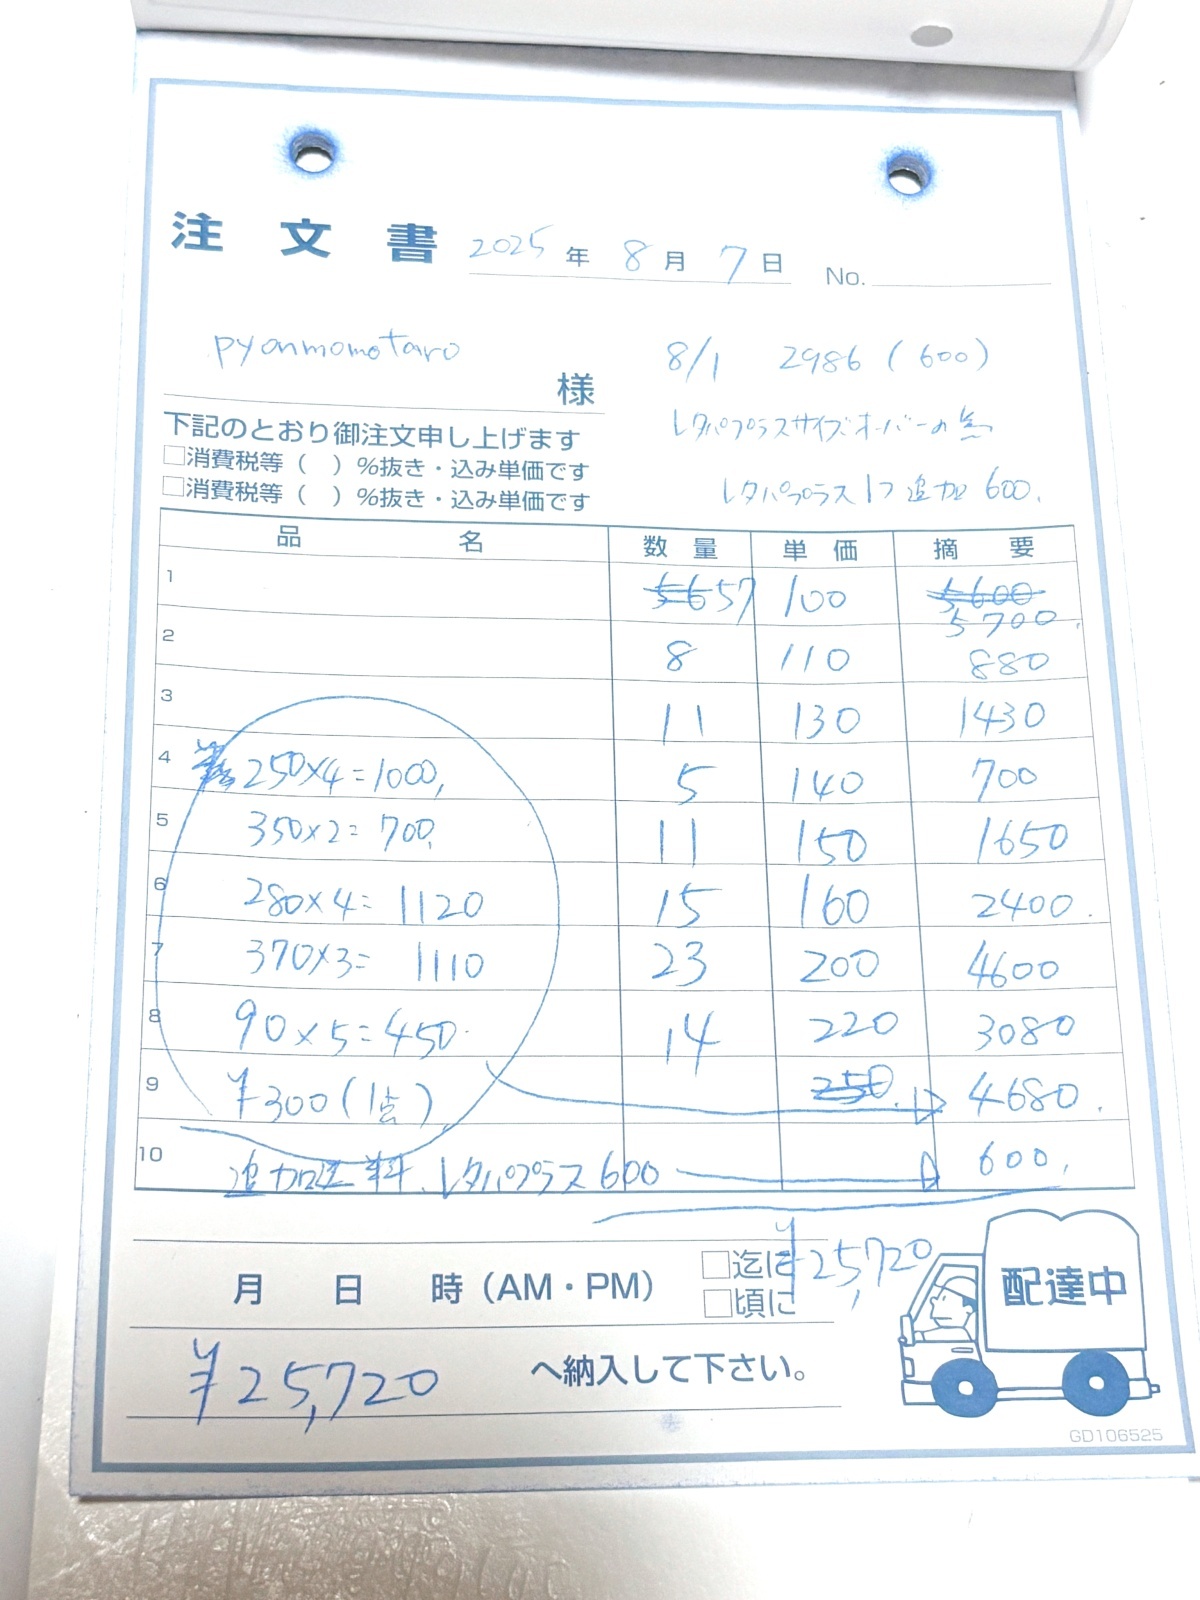 注文書 2025年 8月 7日 No.
pyonmomotaro 様
8/1 2986 (600)
レタパプラスサイズオーバーの為
レタパプラス1つ追加 600.
下記のとおり御注文申し上げます
□消費税等( )%抜き・込み単価です
□消費税等( )%抜き・込み単価です
品名 数量 単価 摘要
1 56 57 100 5600 5700.
2 8 110 880
3 11 130 1430
4 ¥250×4=1000, 5 140 700
5 350×2=700, 11 150 1650
6 280×4= 1120 15 160 2400.
7 370×3= 1110 23 200 4600
8 90×5=450. 14 220 3080
9 ¥300(1点) 250. 4680.
10 追加送料、レタパプラス600 600.
¥25,720
月 日 時(AM・PM) □迄に
□頃に
配達中
¥25,720 へ納入して下さい。
GD106525